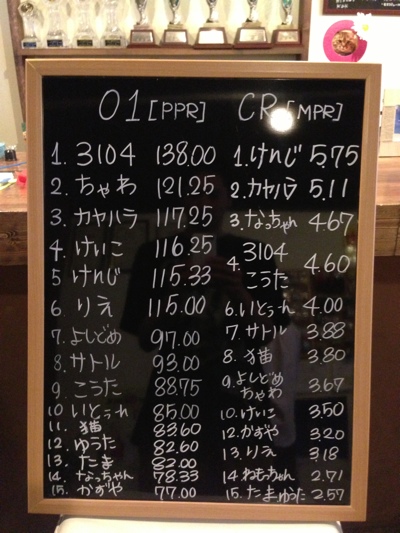 01 [PPR]
1. 3104 138.00
2. ちゃわ 121.25
3. カヤハラ 117.25
4. けいこ 116.25
5 けれじ 115.33
6. りえ 115.00
7. よしどめ 97.00
8. サトル 93.00
9. こうた 88.75
10. いとぅーれ 85.00
11. 猫 83.60
12. ゆうた 82.60
13. たま 82.00
14. なっちゃん 78.33
15. かずや 77.00
CR [MPR]
1. けれじ 5.75
2. カヤハラ 5.11
3. なっちゃん 4.67
4. 3104
こうた 4.60
6. いとぅーれ 4.00
7. サトル 3.88
8. 猫 3.80
9. よしどめ
ちゃわ 3.67
10. けいこ 3.50
12. かずや 3.20
13. りえ 3.18
14 ねもっちゃん 2.71
15. たま ゆうた 2.57